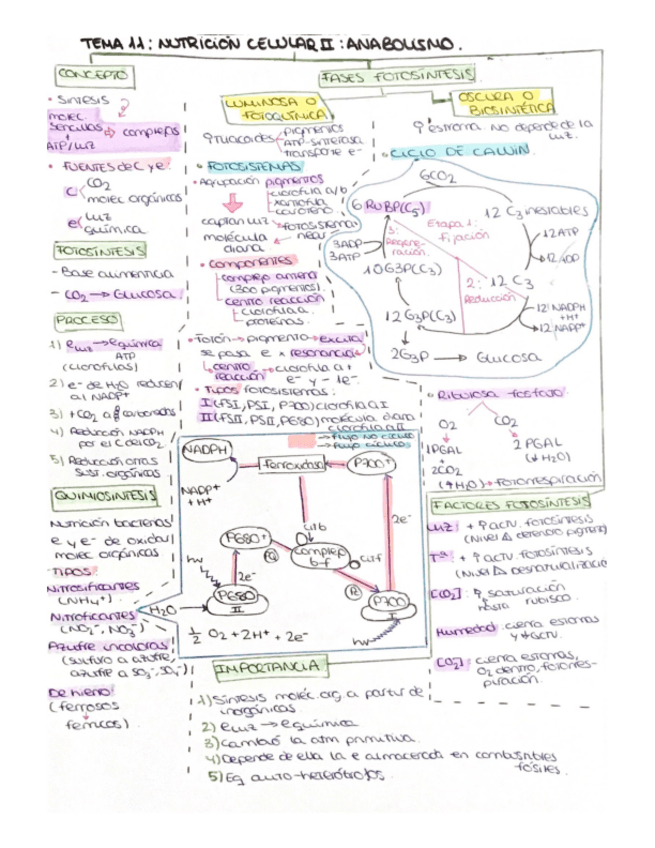 TEMA 11: NUTRICIÓN CELULAR II: ANABOLISMO.
CONCEPTO
• SINTESIS
molec.
sencillas → complejas
ATP/LUZ
• FUENTES de C y e-:
C CO2
molec orgánicas
e- LUZ
química
FOTOSÍNTESIS
- Base alimenticia
- CO2 → Glucosa.
PROCESO
1) e LUZ → e química
ATP
(clorofilas)
2) e- de H2O reducen
al NADP+
3) + CO2 a carbonados
4) Reducción NADPH
por el C del CO2
5) Reducción otras
sust. orgánicas
QUIMIOSINTESIS
Nutrición bacterias
e y e- de oxidar
molec orgánicas
TIPOS:
Nitrosificantes
(NH4+)
Nitrificantes
(NO2-, NO3-)
Azufre incoloras
(sulfuro a azufre,
De hierro:
(ferrosos
ferricos)
FASES FOTOSÍNTESIS
LUMINOSA O
FOTOQUÍMICA
pigmentos
ATP-sintetasa
transporte e-
• FOTOSISTEMAS
• Agrupación pigmentos
clorofila a/b
xantofila
caroteno
captan luz fotosistema
molécula
diana
• Componentes
complejo antena
(300 pigmentos)
centro reacción
clorofila a
proteínas.
• Fotón → pigmento → excita
se pasa e x resonancia
centro → clorofila a +
reacción e- y - 1e-
• Tipos fotosistemas:
I (FSI, PSI, P700) clorofila a I
II (FSII, PSII, P680) molécula diana
clorofila a II
→ Flujo no cíclico
→ Flujo cíclico
NADPH
ferredoxina
P700+
NADP+
+ H+
2e-
cit b
P680+
PQ
Complejo
b-f
cit f
hν
2e-
P680
II
Pc
P700
I
H2O
½ O2 + 2H+ + 2e-
hν
OSCURA O
BIOSINTÉTICA
estroma. No depende de la
luz.
• CICLO DE CALVIN.
6CO2
6 RUBP(C5)
12 C3 inestables
Etapa 1:
fijación
3:
Regene-
ración.
3ADP
3ATP
12 ATP
12 ADP
10G3P(C3)
2:
Reducción
12 C3
12 NADPH
+ H+
12 NADP+
12 G3P(C3)
2G3P → Glucosa
• Ribulosa fosfato:
O2 CO2
1PGAL
+
2CO2
(↑H2O) → Fotorrespiración
2 PGAL
(↓H2O)
FACTORES FOTOSÍNTESIS
LUZ: + actv. fotosíntesis
Tª: + actv. fotosíntesis
[CO2]: saturación
hasta rubisco.
Humedad: cierra estomas
[O2]: cierra estomas,
O2 dentro, fotorres-
piración.
IMPORTANCIA
1) Síntesis moléc. org a partir de
inorgánicas.
2) e luz → e química
3) Cambió la atm primitiva.
4) Depende de ella la e almacenada en combustibles
fósiles.
5) Eq auto-heterótrofos.